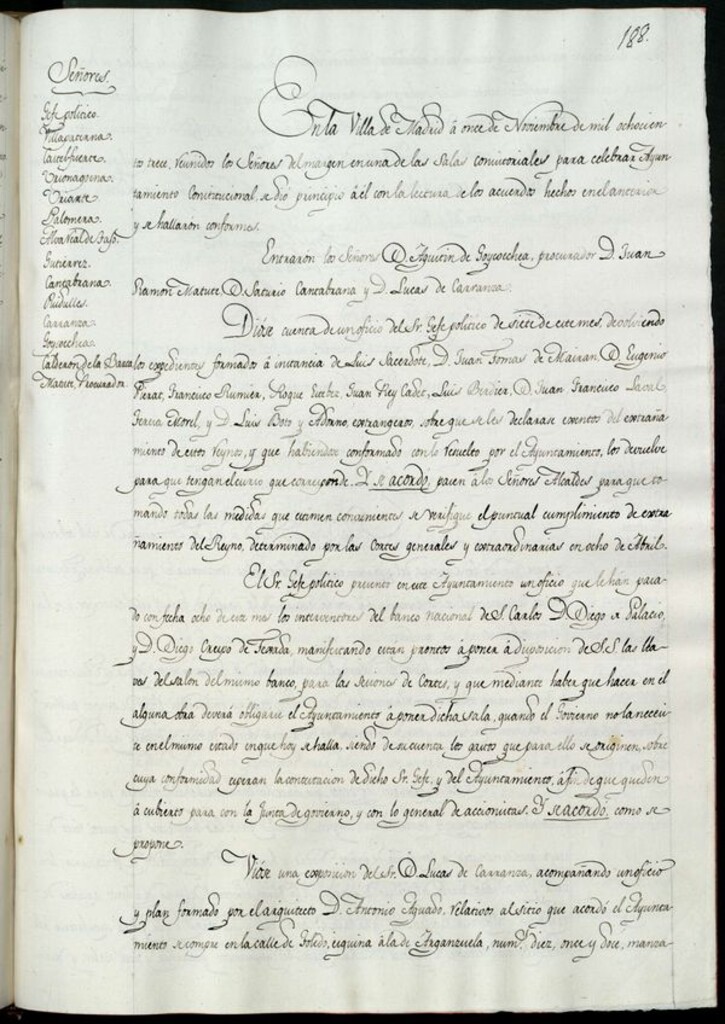 188.
Señores.
Gefe politico.
Villapaterna.
Castelfuerte.
Urionagoena.
Uriarte.
Palomera.
Gutierrez.
Cantabrana.
Ruidulles.
Carranza.
Goycochea.
Calderon de la Barca
Matute, Procurador.
En la Villa de Madrid á once de Noviembre de mil ochocien-
tos trece, reunidos los Señores del margen en una de las Salas consistoriales para celebrar Ayun-
tamiento Constitucional, se dió principio á él con la lectura de los acuerdos hechos en el anterior
y se hallaron conformes.
Entraron los Señores D. Agustin de Goycochea, procurador D. Juan
Ramon Matute, D. Saturio Cantabrana y D. Lucas de Carranza.
Dióse cuenta de un oficio del Sr. Gefe politico de siete de este mes, devolviendo
los expedientes formados á instancia de Luis Sacerdote, D. Juan Tomas de Mairan, D. Eugenio
Pierat, Francisco Rumier, Roque Estebez, Juan Rey Cadet, Luis Berdier, D. Juan Francisco
Morel, y D. Luis Boto y Adorno, extrangeros, sobre que se les declarase exentos del extraña-
miento de estos Reynos, y que habiendose conformado con lo resuelto por el Ayuntamiento, los devuelve
para que tengan el curso que corresponde. Y se acordó, pasen á los Señores Alcaldes para que to-
mando todas las medidas que estimen convenientes se verifique el puntual cumplimiento de extra-
ñamiento del Reyno, determinado por las Cortes generales y extraordinarias en ocho de Abril.
El Sr. Gefe politico presentó en este Ayuntamiento un oficio que le han pasa-
do con fecha ocho de este mes los interventores del banco nacional de S. Carlos D. Diego Palacio,
y D. Diego Crespo de Texada, manifestando estan prontos á poner á disposicion de S.S. las lla-
ves del salon del mismo banco, para las sesiones de Cortes, y que mediante haber que hacer en el
alguna obra deverá obligarse el Ayuntamiento á poner dicha sala, quando el Govierno no la necesi-
te en el mismo estado en que hoy se halla, siendo de su cuenta los gastos que para ello se originen, sobre
cuya conformidad esperan la contextacion de dicho Sr. Gefe, y del Ayuntamiento, á fin de que queden
á cubierto para con la Junta de govierno, y con lo general de accionistas. Y se acordó, como se
propone.
Vióse una exposicion del Sr. D. Lucas de Carranza, acompañando un oficio
y plan formado por el arquitecto D. Antonio Aguado, relativos al sitio que acordó el Ayunta-
miento se compre en la calle de Toledo, esquina á la de Arganzuela, num.s diez, once y doce, manza-